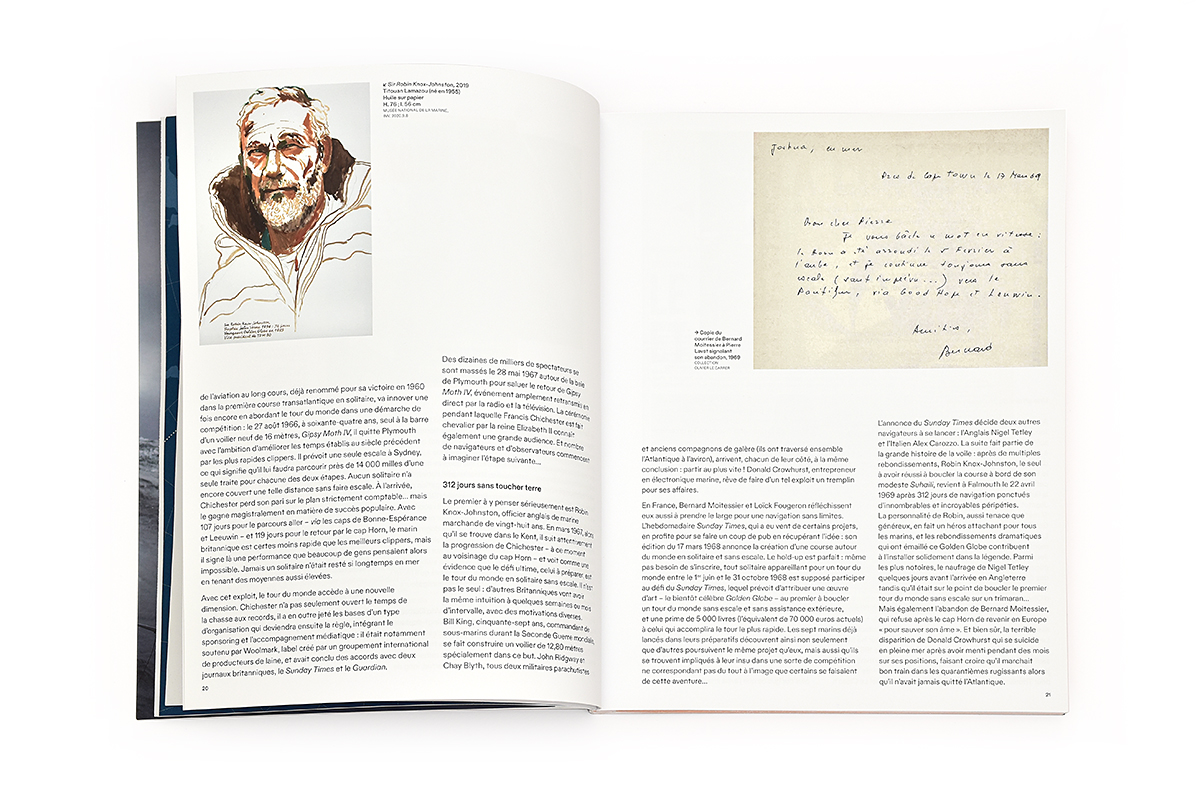 ↙ Sir Robin Knox-Johnston, 2019
Titouan Lamazou (né en 1955)
Huile sur papier
H. 76 ; l. 56 cm
MUSÉE NATIONAL DE LA MARINE,
INV. 2020.3.8
de l'aviation au long cours, déjà renommé pour sa victoire en 1960
dans la première course transatlantique en solitaire, va innover une
fois encore en abordant le tour du monde dans une démarche de
compétition : le 27 août 1966, à soixante-quatre ans, seul à la barre
d'un voilier neuf de 16 mètres, Gipsy Moth IV, il quitte Plymouth
avec l'ambition d'améliorer les temps établis au siècle précédent
par les plus rapides clippers. Il prévoit une seule escale à Sydney,
ce qui signifie qu'il lui faudra parcourir près de 14 000 milles d'une
seule traite pour chacune des deux étapes. Aucun solitaire n'a
encore couvert une telle distance sans faire escale. À l'arrivée,
Chichester perd son pari sur le plan strictement comptable... mais
le gagne magistralement en matière de succès populaire. Avec
107 jours pour le parcours aller – via les caps de Bonne-Espérance
et Leeuwin – et 119 jours pour le retour par le cap Horn, le marin
britannique est certes moins rapide que les meilleurs clippers, mais
il signe là une performance que beaucoup de gens pensaient alors
impossible. Jamais un solitaire n'était resté si longtemps en mer
en tenant des moyennes aussi élevées.
Avec cet exploit, le tour du monde accède à une nouvelle
dimension. Chichester n'a pas seulement ouvert le temps de
la chasse aux records, il a en outre jeté les bases d'un type
d'organisation qui deviendra ensuite la règle, intégrant le
sponsoring et l'accompagnement médiatique : il était notamment
soutenu par Woolmark, label créé par un groupement international
de producteurs de laine, et avait conclu des accords avec deux
journaux britanniques, le Sunday Times et le Guardian.
20
Des dizaines de milliers de spectateurs se
sont massés le 28 mai 1967 autour de la baie
de Plymouth pour saluer le retour de Gipsy
Moth IV, événement amplement retransmis en
direct par la radio et la télévision. La cérémonie
pendant laquelle Francis Chichester est fait
chevalier par la reine Elizabeth II connaît
également une grande audience. Et nombre
de navigateurs et d'observateurs commencent
à imaginer l'étape suivante...
312 jours sans toucher terre
Le premier à y penser sérieusement est Robin
Knox-Johnston, officier anglais de marine
marchande de vingt-huit ans. En mars 1967, alors
qu'il se trouve dans le Kent, il suit attentivement
la progression de Chichester – à ce moment
au voisinage du cap Horn – et voit comme une
évidence que le défi ultime, celui à préparer, est
le tour du monde en solitaire sans escale. Il n'est
pas le seul : d'autres Britanniques vont avoir
la même intuition à quelques semaines ou mois
d'intervalle, avec des motivations diverses.
Bill King, cinquante-sept ans, commandant de
sous-marins durant la Seconde Guerre mondiale,
se fait construire un voilier de 12,80 mètres
spécialement dans ce but. John Ridgway et
Chay Blyth, tous deux militaires parachutistes
Joshua, en mer
Baie de Cap Town le 17 Mars 69
Mon cher Pierre
Je vous bâcle un mot en vitesse :
le Horn a été arrondi le 5 Fevrier à
l'aube, et je continue toujours sans
escale (sauf imprévu...) vers le
Pacifique, via Good Hope et Leuwin.
Amitiés,
Bernard
→ Copie du
courrier de Bernard
Moitessier à Pierre
Lavat signalant
son abandon, 1969
COLLECTION
OLIVIER LE CARRER
et anciens compagnons de galère (ils ont traversé ensemble
l'Atlantique à l'aviron), arrivent, chacun de leur côté, à la même
conclusion : partir au plus vite ! Donald Crowhurst, entrepreneur
en électronique marine, rêve de faire d'un tel exploit un tremplin
pour ses affaires.
En France, Bernard Moitessier et Loïck Fougeron réfléchissent
eux aussi à prendre le large pour une navigation sans limites.
L'hebdomadaire Sunday Times, qui a eu vent de certains projets,
en profite pour se faire un coup de pub en récupérant l'idée : son
édition du 17 mars 1968 annonce la création d'une course autour
du monde en solitaire et sans escale. Le hold-up est parfait : même
pas besoin de s'inscrire, tout solitaire appareillant pour un tour du
monde entre le 1er juin et le 31 octobre 1968 est supposé participer
au défi du Sunday Times, lequel prévoit d'attribuer une œuvre
d'art – le bientôt célèbre Golden Globe – au premier à boucler
un tour du monde sans escale et sans assistance extérieure,
et une prime de 5 000 livres (l'équivalent de 70 000 euros actuels)
à celui qui accomplira le tour le plus rapide. Les sept marins déjà
lancés dans leurs préparatifs découvrent ainsi non seulement
que d'autres poursuivent le même projet qu'eux, mais aussi qu'ils
se trouvent impliqués à leur insu dans une sorte de compétition
ne correspondant pas du tout à l'image que certains se faisaient
de cette aventure...
L'annonce du Sunday Times décide deux autres
navigateurs à se lancer : l'Anglais Nigel Tetley
et l'Italien Alex Carozzo. La suite fait partie de
la grande histoire de la voile : après de multiples
rebondissements, Robin Knox-Johnston, le seul
à avoir réussi à boucler la course à bord de son
modeste Suhaili, revient à Falmouth le 22 avril
1969 après 312 jours de navigation ponctués
d'innombrables et incroyables péripéties.
La personnalité de Robin, aussi tenace que
généreux, en fait un héros attachant pour tous
les marins, et les rebondissements dramatiques
qui ont émaillé ce Golden Globe contribuent
à l'installer solidement dans la légende. Parmi
les plus notoires, le naufrage de Nigel Tetley
quelques jours avant l'arrivée en Angleterre
tandis qu'il était sur le point de boucler le premier
tour du monde sans escale sur un trimaran...
Mais également l'abandon de Bernard Moitessier,
qui refuse après le cap Horn de revenir en Europe
« pour sauver son âme ». Et bien sûr, la terrible
disparition de Donald Crowhurst qui se suicide
en pleine mer après avoir menti pendant des mois
sur ses positions, faisant croire qu'il marchait
bon train dans les quarantièmes rugissants alors
qu'il n'avait jamais quitté l'Atlantique.
21